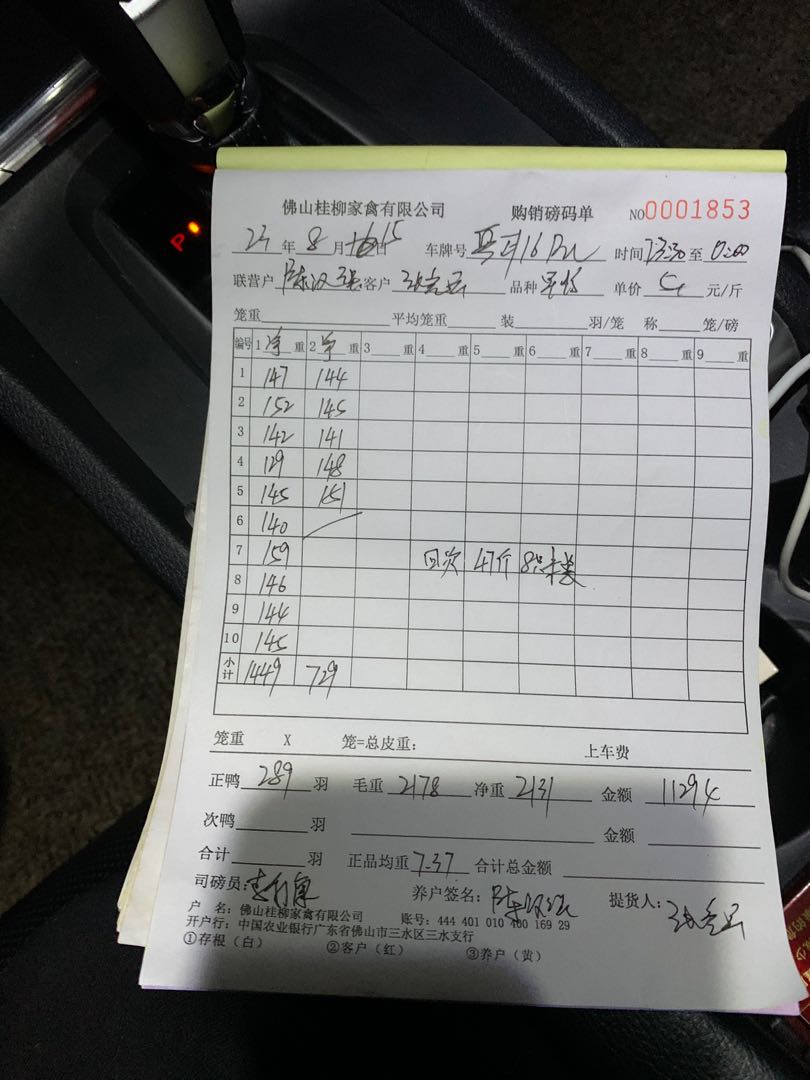 佛山桂柳家禽有限公司 购销磅码单 NO0001853
23 年 8 月 15 日 车牌号 时间 至 0:00
联营户 陈汉 客户 品种 单价 元/斤
笼重 平均笼重 装 羽/笼 称 笼/磅
编号 1 净 重 2 净 重 3 重 4 重 5 重 6 重 7 重 8 重 9 重
1 147 144
2 152 145
3 142 141
4 129 148
5 145 151
6 140
7 159 回次 47斤 8只
8 146
9 144
10 145
小计 1449 729
笼重 X 笼=总皮重: 上车费
正鸭 289 羽 毛重 2178 净重 2131 金额 11294
次鸭 羽 金额
合计 羽 正品均重 7.37 合计总金额
司磅员: 养户签名: 陈汉 提货人:
户 名: 佛山桂柳家禽有限公司 账号: 444 401 010 400 169 29
开户行: 中国农业银行广东省佛山市三水区三水支行
①存根（白） ②客户（红） ③养户（黄）
P